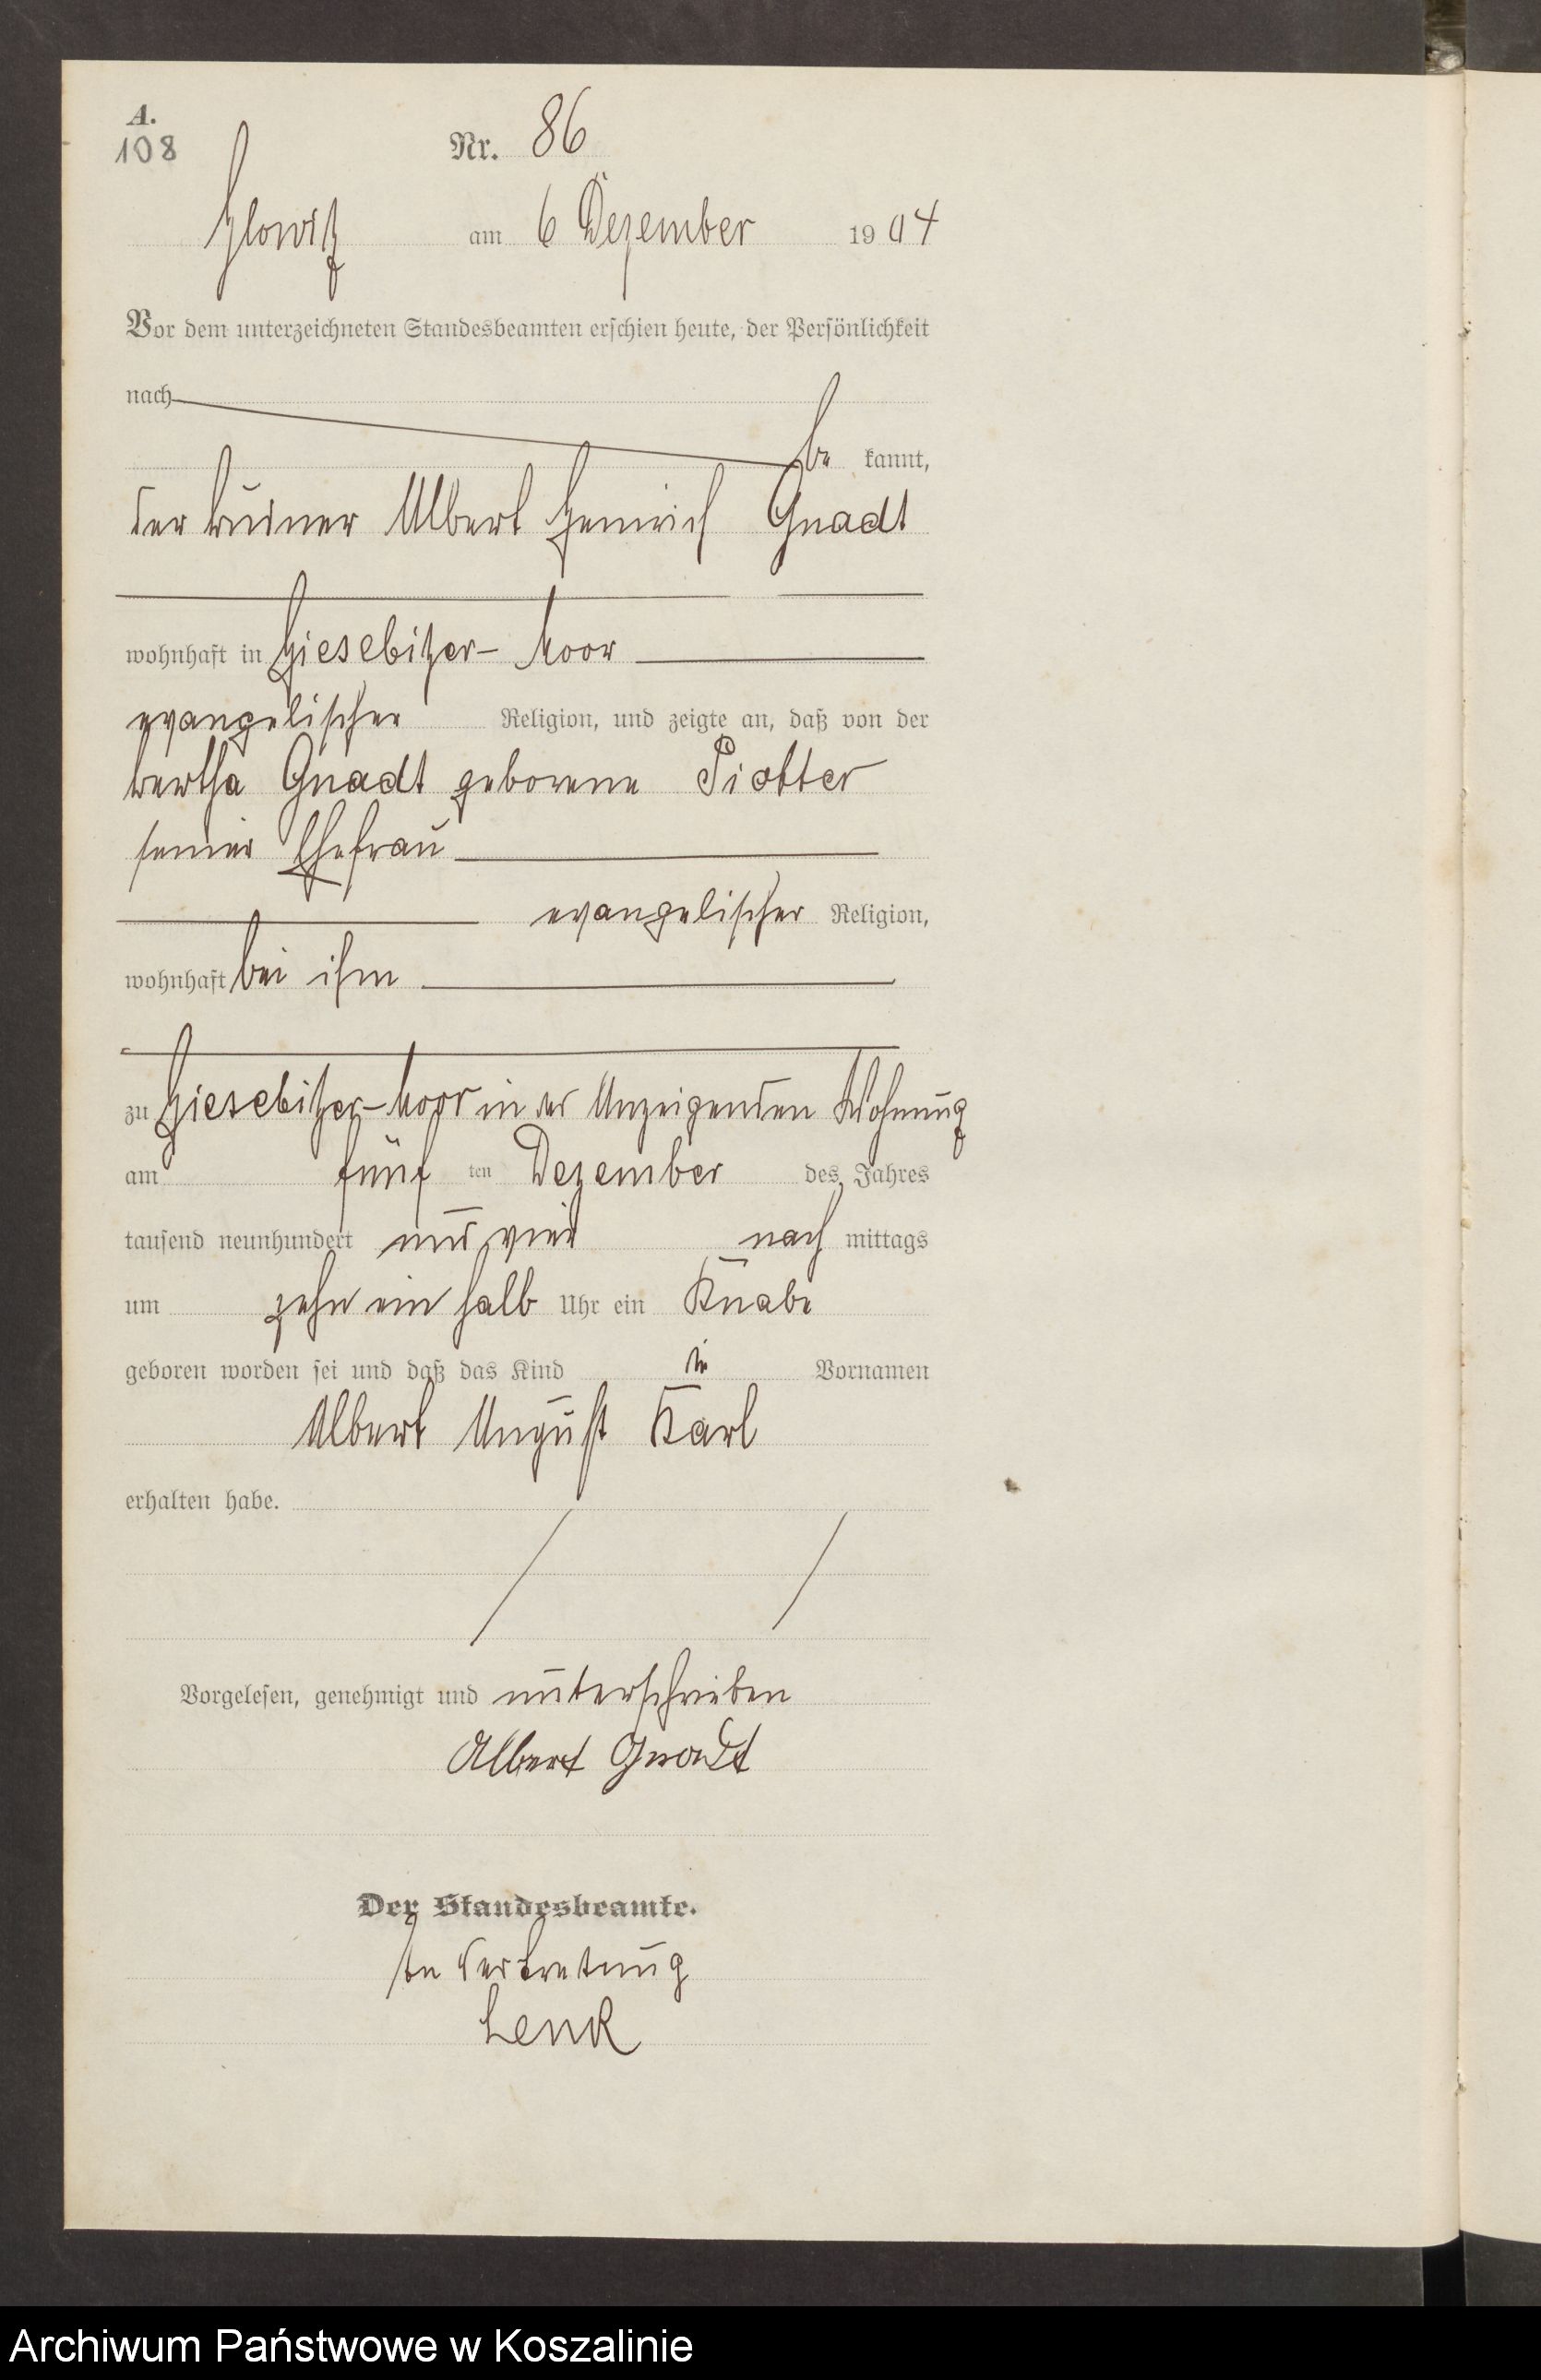 A.
108
Nr. 86
Glowitz am 6 Dezember 1904
Vor dem unterzeichneten Standesbeamten erschien heute, der Persönlichkeit
nach
be kannt,
der Büdner Albert Heinrich Gnadt
wohnhaft in Giesebitzer-Moor
evangelischer Religion, und zeigte an, daß von der
Bertha Gnadt geborene Piotter
seiner Ehefrau
evangelischer Religion,
wohnhaft bei ihm
zu Giesebitzer-Moor in des Anzeigenden Wohnung
am fünf ten Dezember des Jahres
tausend neunhundert und vier nach mittags
um zehn ein halb Uhr ein Knabe
geboren worden sei und daß das Kind die Vornamen
Albert August Karl
erhalten habe.
Vorgelesen, genehmigt und unterschrieben
Albert Gnadt
Der Standesbeamte.
In Vertretung
Lenk
Archiwum Państwowe w Koszalinie